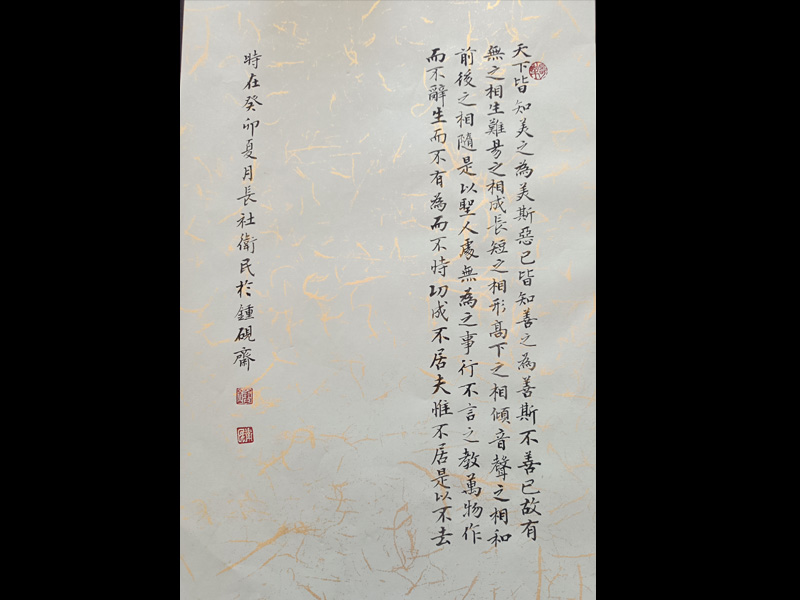 天下皆知美之為美斯惡已皆知善之為善斯不善已故有
無之相生難易之相成長短之相形高下之相傾音聲之相和
前後之相隨是以聖人處無為之事行不言之教萬物作
而不辭生而不有為而不恃功成不居夫惟不居是以不去
時在癸卯夏月長社衛民於鍾硯齋